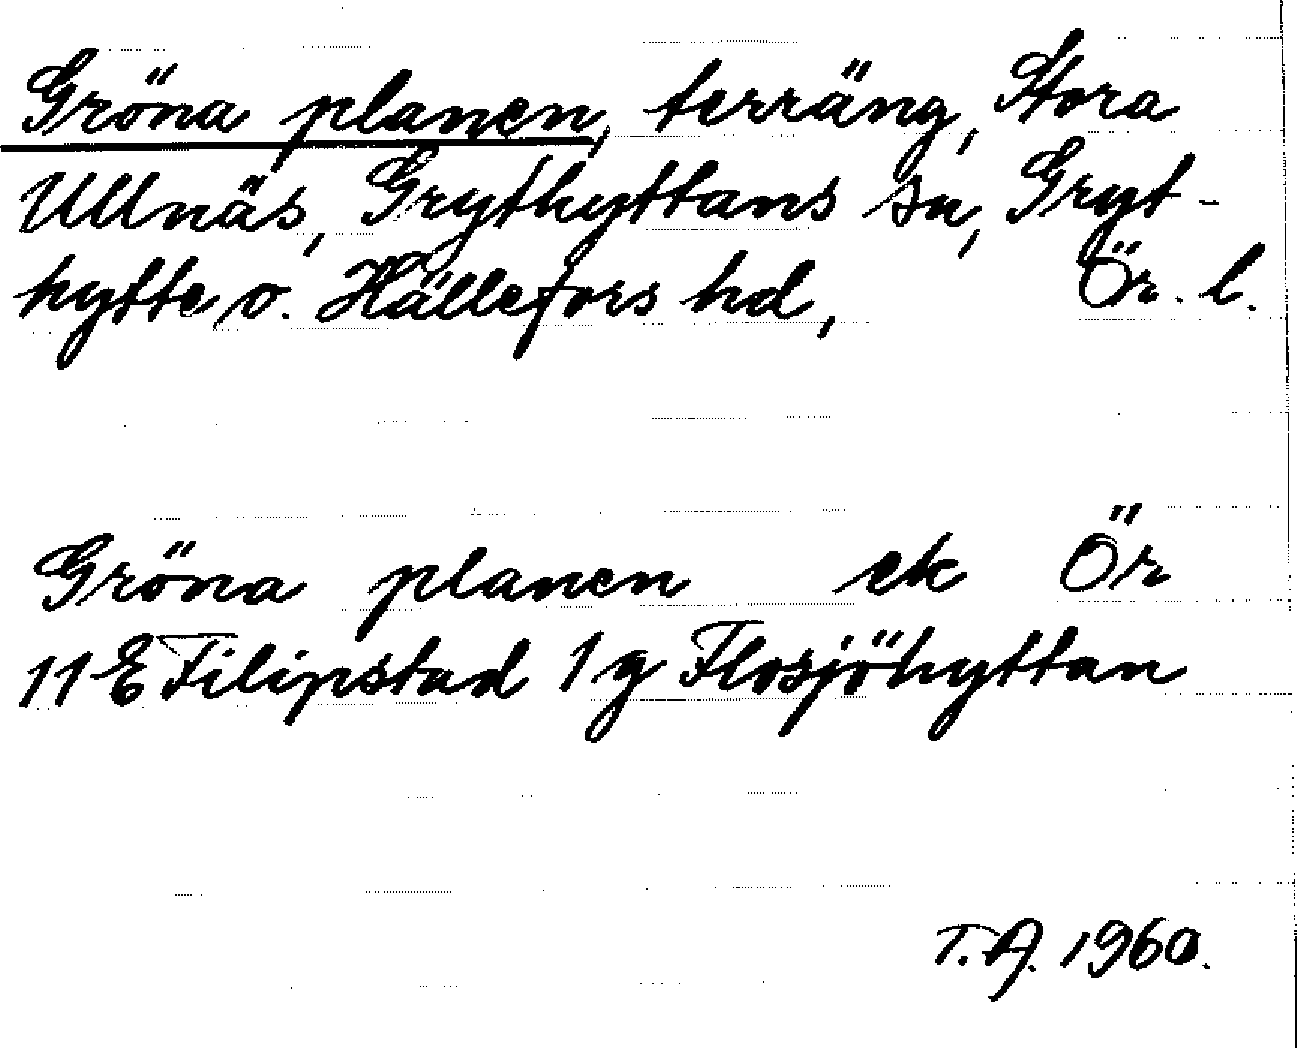 Gröna planen, terräng, Stora
Ullnäs, Grythyttans sn, Gryt-
hytte o. Hällefors hd, Ör. l.
Gröna planen ek Ör
11 E Filipstad 1 g Flosjöhyttan
T.A. 1960.